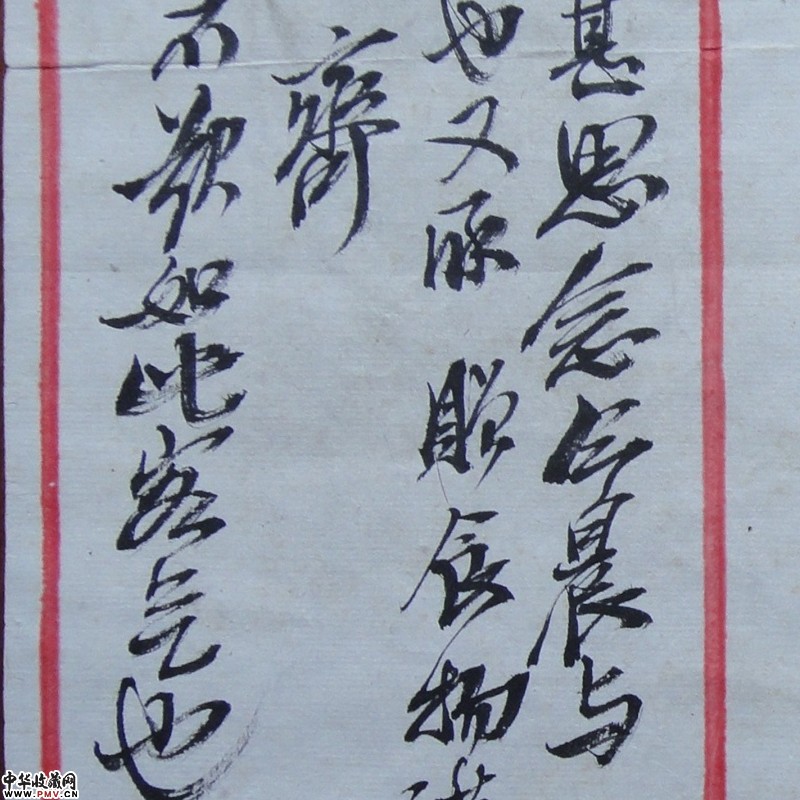 甚思念今晨与
也又承 賜食物
齊
不敢如此客气也
中华收藏网
www.PMV.CN